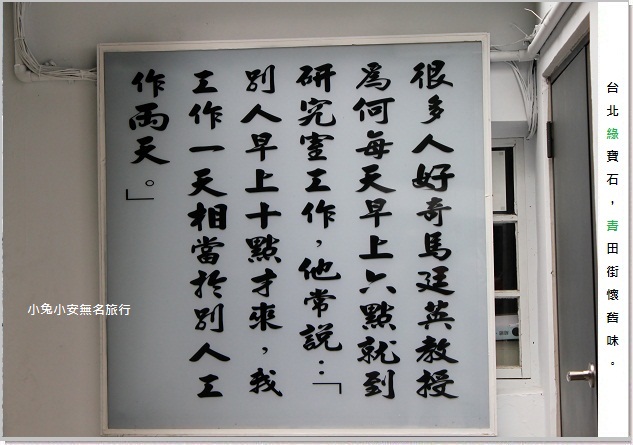 很多人好奇馬廷英教授
為何每天早上六點就到
研究室工作，他常說：「
別人早上十點才來，我
工作一天相當於別人工
作兩天。」
小兔小安無名旅行
台北綠寶石，青田街懷舊味。